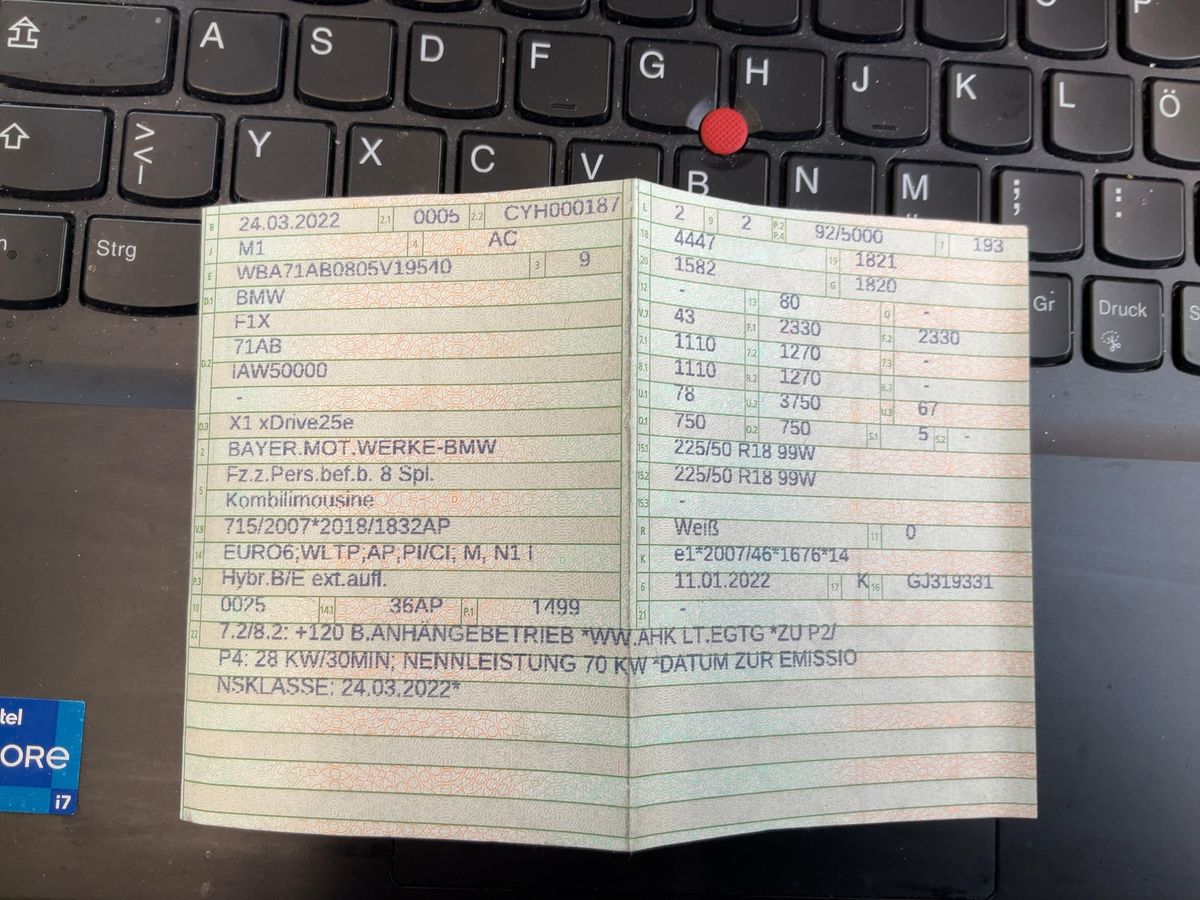 A S D F G H J K L Ö
> < | Y X C V B N M ; , : .
Strg Gr Druck
B 24.03.2022 2.1 0005 2.2 CYH000187
J M1 4 AC
E WBA71AB0805V19540 3 9
D.1 BMW
F1X
D.2 71AB
iAW50000
-
D.3 X1 xDrive25e
2 BAYER.MOT.WERKE-BMW
5 Fz.z.Pers.bef.b. 8 Spl.
Kombilimousine
V.9 715/2007*2018/1832AP
14 EURO6;WLTP;AP;PI/CI; M, N1 I
P.3 Hybr.B/E ext.aufl.
10 0025 14.1 36AP P.1 1499
L 2 9 2 P.2 P.4 92/5000 T 193
18 4447 19 1821
20 1582 G 1820
12 - 13 80 Q -
V.7 43 F.1 2330 F.2 2330
7.1 1110 7.2 1270 7.3 -
8.1 1110 8.2 1270 8.3 -
U.1 78 U.2 3750 U.3 67
O.1 750 O.2 750 S.1 5 S.2 -
15.1 225/50 R18 99W
15.2 225/50 R18 99W
15.3 -
R Weiß 11 0
K e1*2007/46*1676*14
6 11.01.2022 17 K 16 GJ319331
21 -
22 7.2/8.2: +120 B.ANHÄNGEBETRIEB *WW.AHK LT.EGTG *ZU P2/
P4: 28 KW/30MIN; NENNLEISTUNG 70 KW *DATUM ZUR EMISSIO
NSKLASSE: 24.03.2022*
tel
ORe
i7